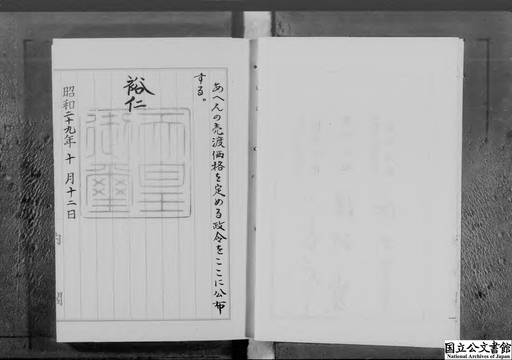 あへんの売渡価格を定める政令をここに公布
する。
裕仁
天皇
御璽
昭和二十九年十月十二日
内閣
国立公文書館
National Archives of Japan